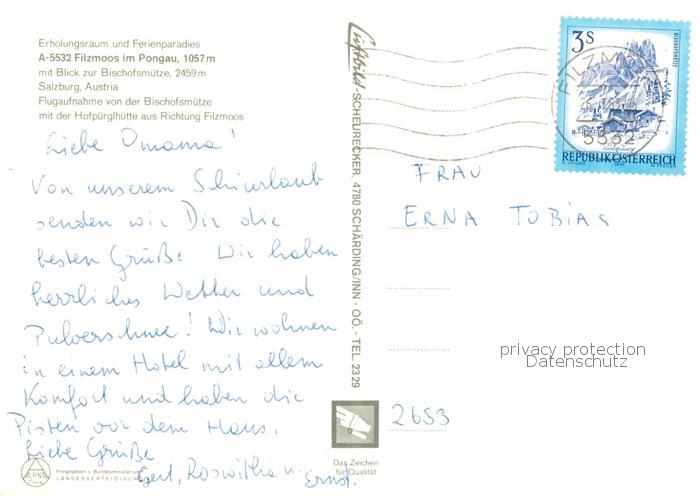 Erholungsraum und Ferienparadies
A-5532 Filzmoos im Pongau, 1057 m
mit Blick zur Bischofsmütze, 2459 m
Salzburg, Austria
Flugaufnahme von der Bischofsmütze
mit der Hofpürglhütte aus Richtung Filzmoos
Liebe Omama!
Von unserem Schiurlaub
senden wir Dir die
besten Grüße. Wir haben
herrliches Wetter und
Pulverschnee! Wir wohnen
in einem Hotel mit allem
Komfort und haben die
Pisten vor dem Haus.
Liebe Grüße
Gerl, Roswitha u. Ernst.
ALPINA
Freigegeben v. Bundesministerium
LANDESVERTEIDIGUNG
Luftbild-SCHEURECKER, 4780 SCHÄRDING/INN - OÖ. - TEL. 2329
Das Zeichen
für Qualität
3 S
BISCHOFSMÜTZE
REPUBLIK ÖSTERREICH
FILZMOOS
5532
FRAU
ERNA TOBIAS
privacy protection
Datenschutz
2653